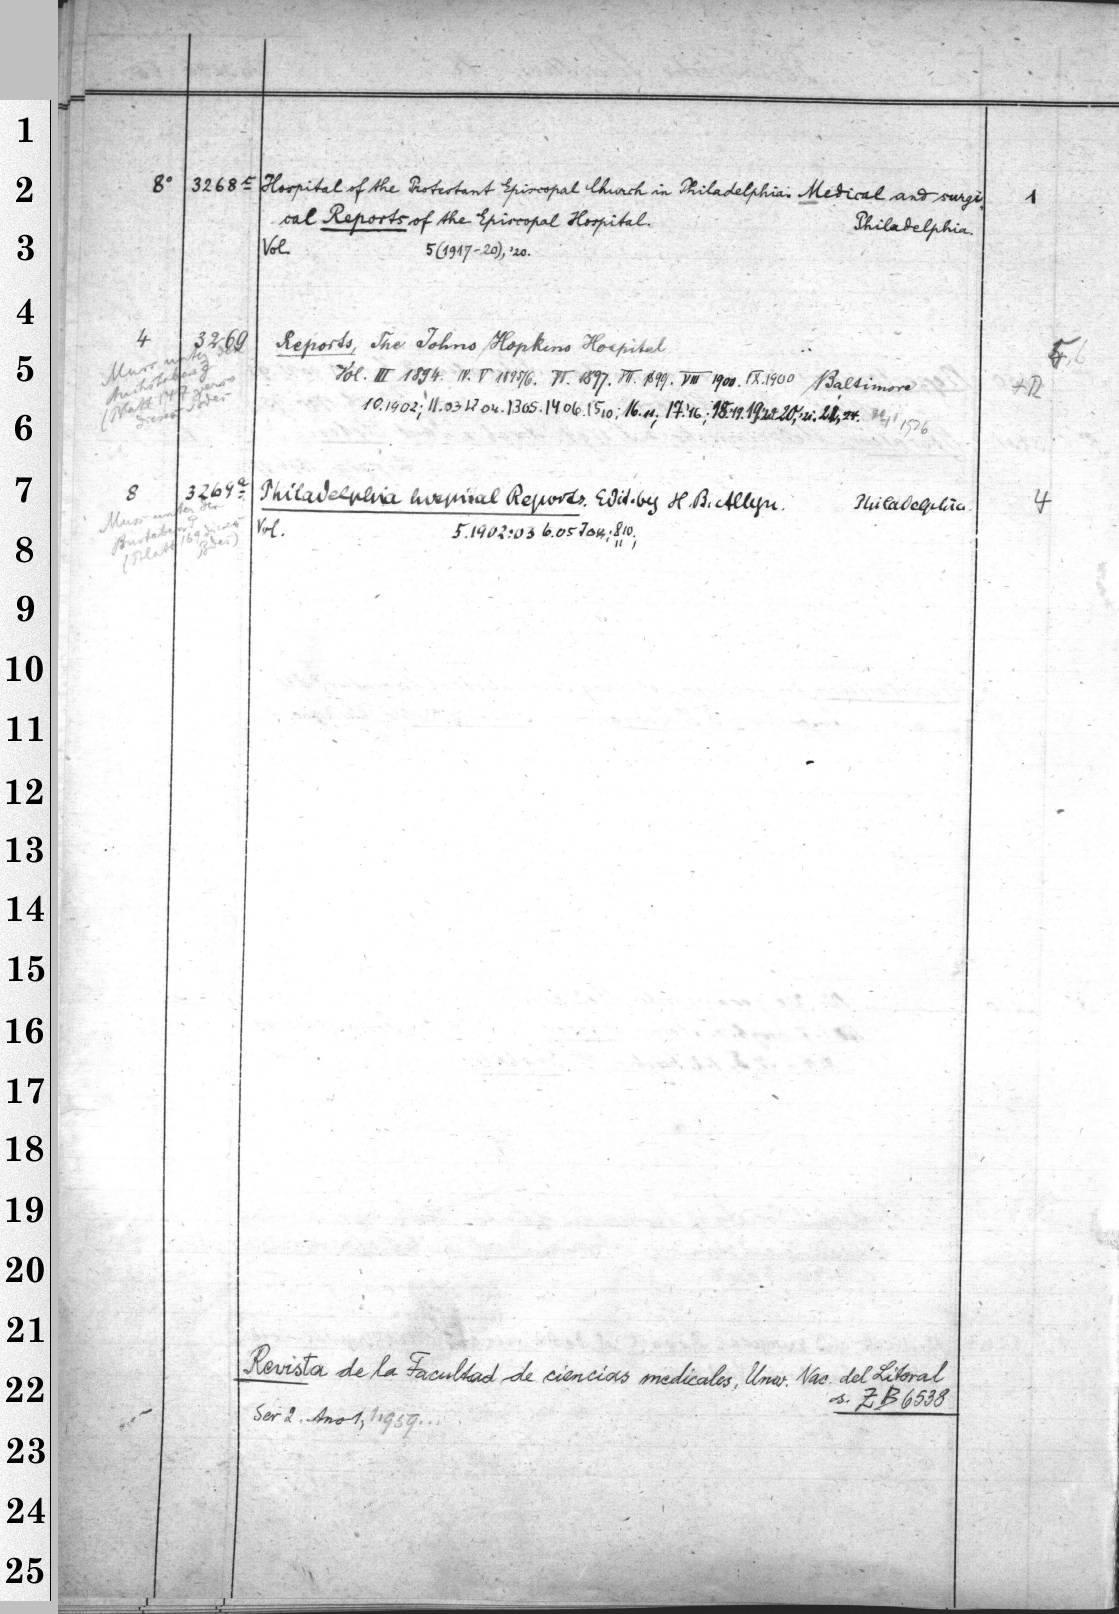 1
2
3
4
5
6
7
8
9
10
11
12
13
14
15
16
17
18
19
20
21
22
23
24
25
8° 3268c Hospital of the Protestant Episcopal Church in Philadelphia. Medical and surgi- 1
cal Reports of the Episcopal Hospital. Philadelphia.
Vol. 5(1917-20), '20.
4 3269 Reports, The Johns Hopkins Hospital
Vol. III 1894. IV. V 1895/6. VI. 1897. VII. 1899. VIII 1900. IX. 1900 Baltimore
10. 1902; 11. 03 12 04. 13 05. 14 06. 15 10; 16. 11; 17. '16; 18. 19. 20, 21. 24.
8 3269a Philadelphia hospital Reports. Edit. by H. B. Allyn. Philadelphia. 4
Vol. 5. 1902:03 6. 05
Revista de la Facultad de ciencias medicales, Univ. Nac. del Litoral
s. ZB 6538
Ser 2. Ano 1, 1959...